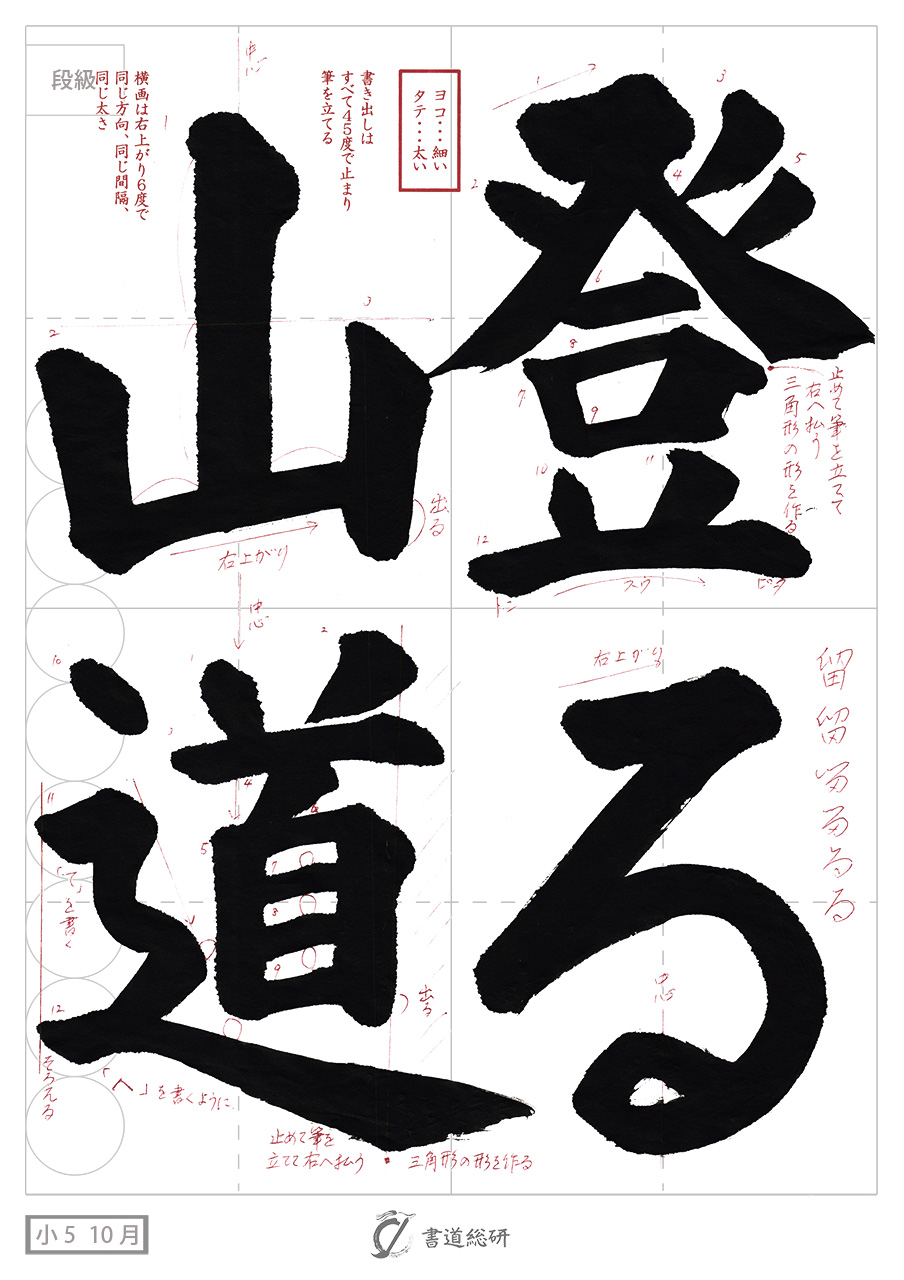 登る
山道
ヨコ・・・細い
タテ・・・太い
書き出しは
すべて45度で止まり
筆を立てる
横画は右上がり6度で
同じ方向、同じ間隔、
同じ太さ
段級
中心
1
2
3
4
5
6
7
8
9
10
11
12
止めて筆を立てて
右へ払う
三角形の形を作る
トン
スウ
ピタ
1
2
3
出る
右上がり
中心
右上がり
留
留
る
中心
1
2
3
4
5
7
8
9
10
11
12
「て」を書く
出る
そろえる
「へ」を書くように
止めて筆を
立てて右へ払う
三角形の形を作る
小5 10月
書道総研